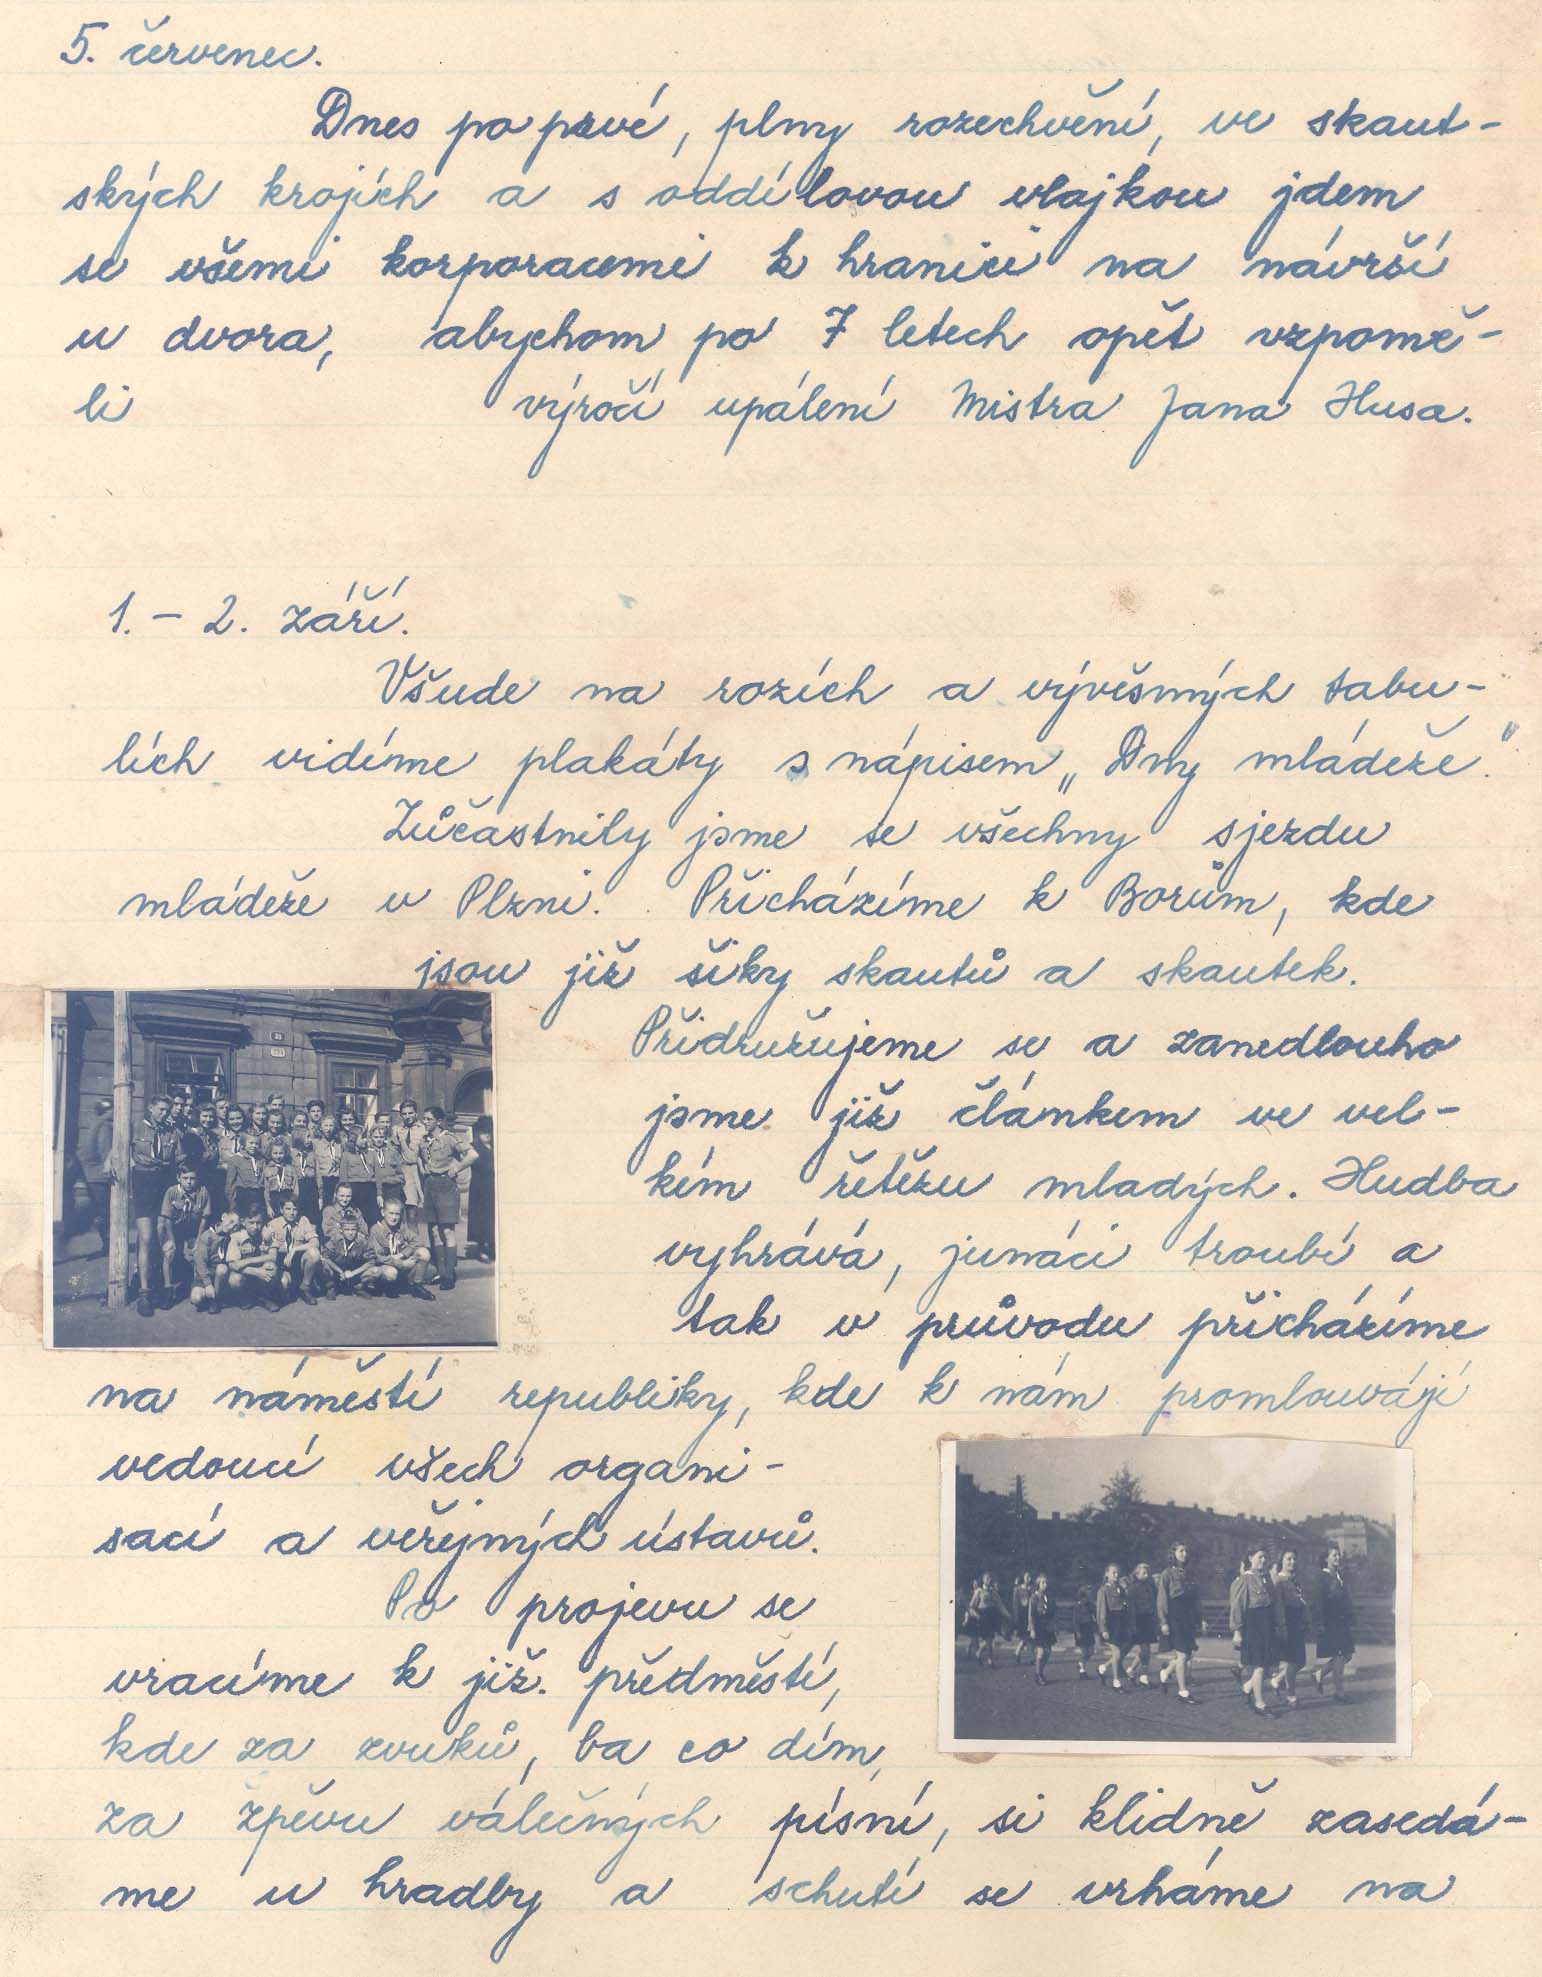 5. červenec.
Dnes po prvé, plny rozechvění, ve skaut-
ských krojích a s oddílovou vlajkou jdem
se všemi korporacemi k hranici na návrší
u dvora, abychom po 7 letech opět vzpomě-
li výročí upálení Mistra Jana Husa.
1. - 2. září.
Všude na rozích a vývěsných tabu-
lích vidíme plakáty s nápisem „Dny mládeže."
Zůčastnily jsme se všechny sjezdu
mládeže v Plzni. Přicházíme k Borům, kde
jsou již šiky skautů a skautek.
Přidružujeme se a zanedlouho
jsme již článkem ve vel-
kém řetězu mladých. Hudba
vyhrává, junáci troubí a
tak v průvodu přicházíme
na náměstí republiky, kde k nám promlouvájí
vedoucí všech organi-
sací a veřejných ústavů.
Po projevu se
vracíme k již. předměstí,
kde za zvuků, ba co dím,
za zpěvu válečných písní, si klidně zasedá-
me u hradby a schutí se vrháme na